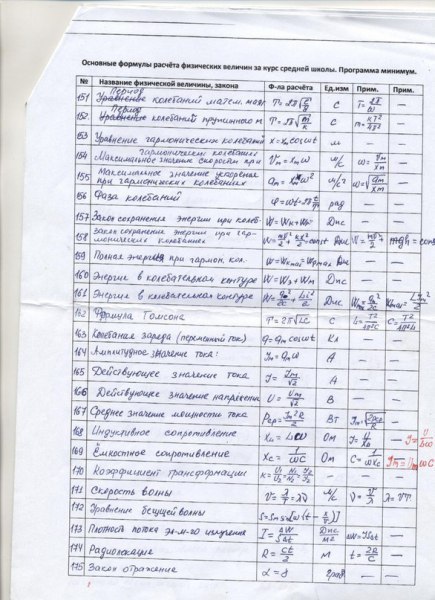 Основные формулы расчёта физических величин за курс средней школы. Программа минимум.
№ Название физической величины, закона Ф-ла расчёта Ед.изм Прим. Прим.
151 Период колебаний матем. маят T=2π√(ℓ/g) с T=2π/ω —
152 Период колебаний пружинного м T=2π√(m/k) с m=kT²/4π² —
153 Уравнение гармонических колебаний x=xₘcosωt м — —
154 Максимальное значение скорости при гармонических колебаниях Vₘ=xₘω м/с ω=Vₘ/xₘ —
155 Максимальное значение ускорения при гармонических колебаниях aₘ=xₘω² м/с² ω=√(aₘ/xₘ) —
156 Фаза колебаний φ=ωt=2π t/T рад — —
157 Закон сохранения энергии при колеб. W=Wк+Wп Дж — —
158 Закон сохранения энергии при гармонических колебаниях W=mv²/2+kx²/2=const Дж
159 Полная энергия при гармон. кол. W=Wкmax=Wpmax Дж — —
160 Энергия в колебательном контуре W=Wэ+Wм Дж — —
161 Энергия в колебательном контуре W=q²/2C+Li²/2 Дж
162 Формула Томсона T=2π√LC с L=T²/4π²C C=T²/4π²L
163 Колебания заряда (переменный ток) q=qₘcosωt Кл — —
164 Амплитудное значение тока: Iₘ=qₘω А — —
165 Действующее значение тока I=Iₘ/√2 А — —
166 Действующее значение напряжени U=Uₘ/√2 В — —
167 Среднее значение мощности тока Pср=Iₘ²R/2 Вт Iₘ=√(2Pср/R) —
168 Индуктивное сопротивление X_L=Lω Ом I=U/X_L I=U/Lω
169 Ёмкостное сопротивление Xc=1/ωC Ом C=1/ωXc Iₘ=UₘωC
170 Коэффициент трансформации K=U₁/U₂=N₁/N₂=I₂/I₁ — — —
171 Скорость волны V=λ/T=λν м/с ν=V/λ λ=VT
172 Уравнение бегущей волны S=Sₘsin[ω(t−x/V)] — —
173 Плотность потока эл-м-го излучения I=ΔW/SΔt Дж ΔW=ISΔt —
174 Радиолокация R=ct/2 м t=2R/c —
175 Закон отражения α=γ град — —